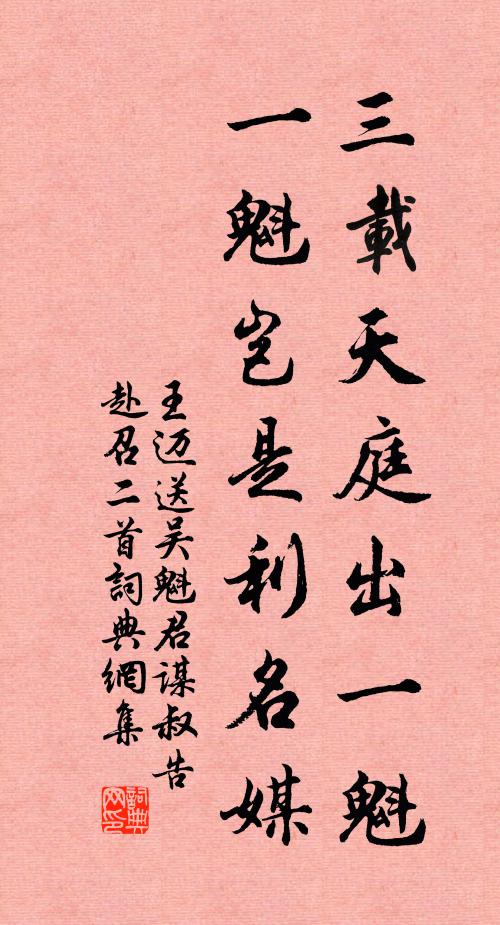 三載天庭出一魁
一魁岂是利名媒
王迈送吴魁君谋叔告
赴召二首詞典網集
詞典网印